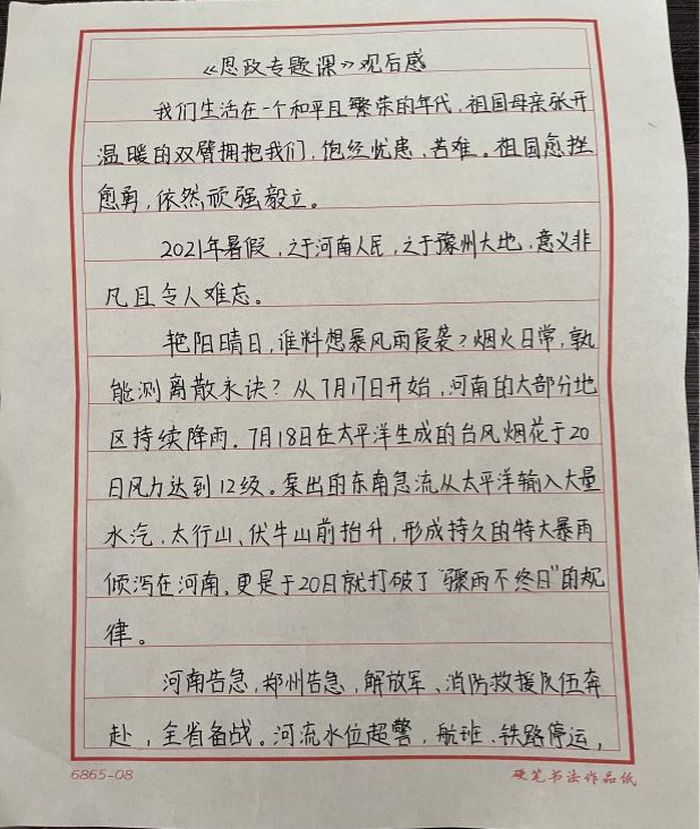 《思政专题课》观后感
我们生活在一个和平且繁荣的年代，祖国母亲张开
温暖的双臂拥抱我们，饱经忧患，苦难。祖国愈挫
愈勇，依然顽强毅立。
2021年暑假，之于河南人民，之于豫州大地，意义非
凡且令人难忘。
艳阳晴日，谁料想暴风雨侵袭？烟火日常，孰
能测离散永诀？从7月17日开始，河南的大部分地
区持续降雨。7月18日在太平洋生成的台风烟花于20
日风力达到12级。泵出的东南急流从太平洋输入大量
水汽，太行山、伏牛山前抬升，形成持久的特大暴雨
倾泻在河南。更是于20日就打破了“骤雨不终日”的规
律。
河南告急，郑州告急，解放军、消防救援队伍奔
赴，全省备战。河流水位超警，航班、铁路停运，
6865-08
硬笔书法作品纸